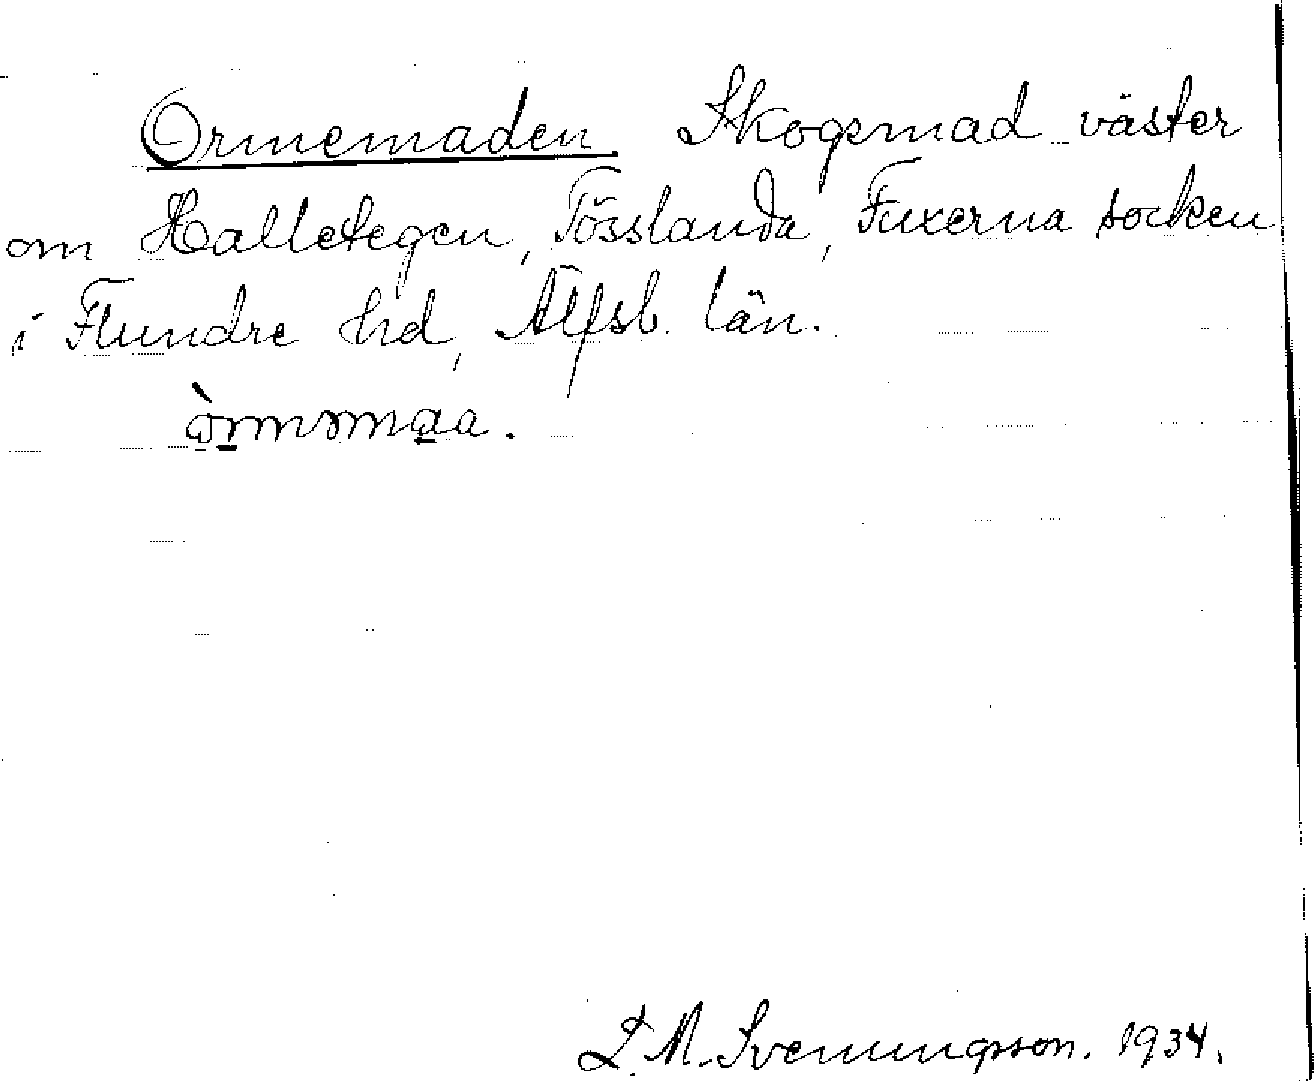 Ormemaden. Skogsmad väster
om Halletegen, Tösslanda, Fuxerna socken
i Flundre hd, Älfsb. län.
L. M. Svenungsson. 1934.